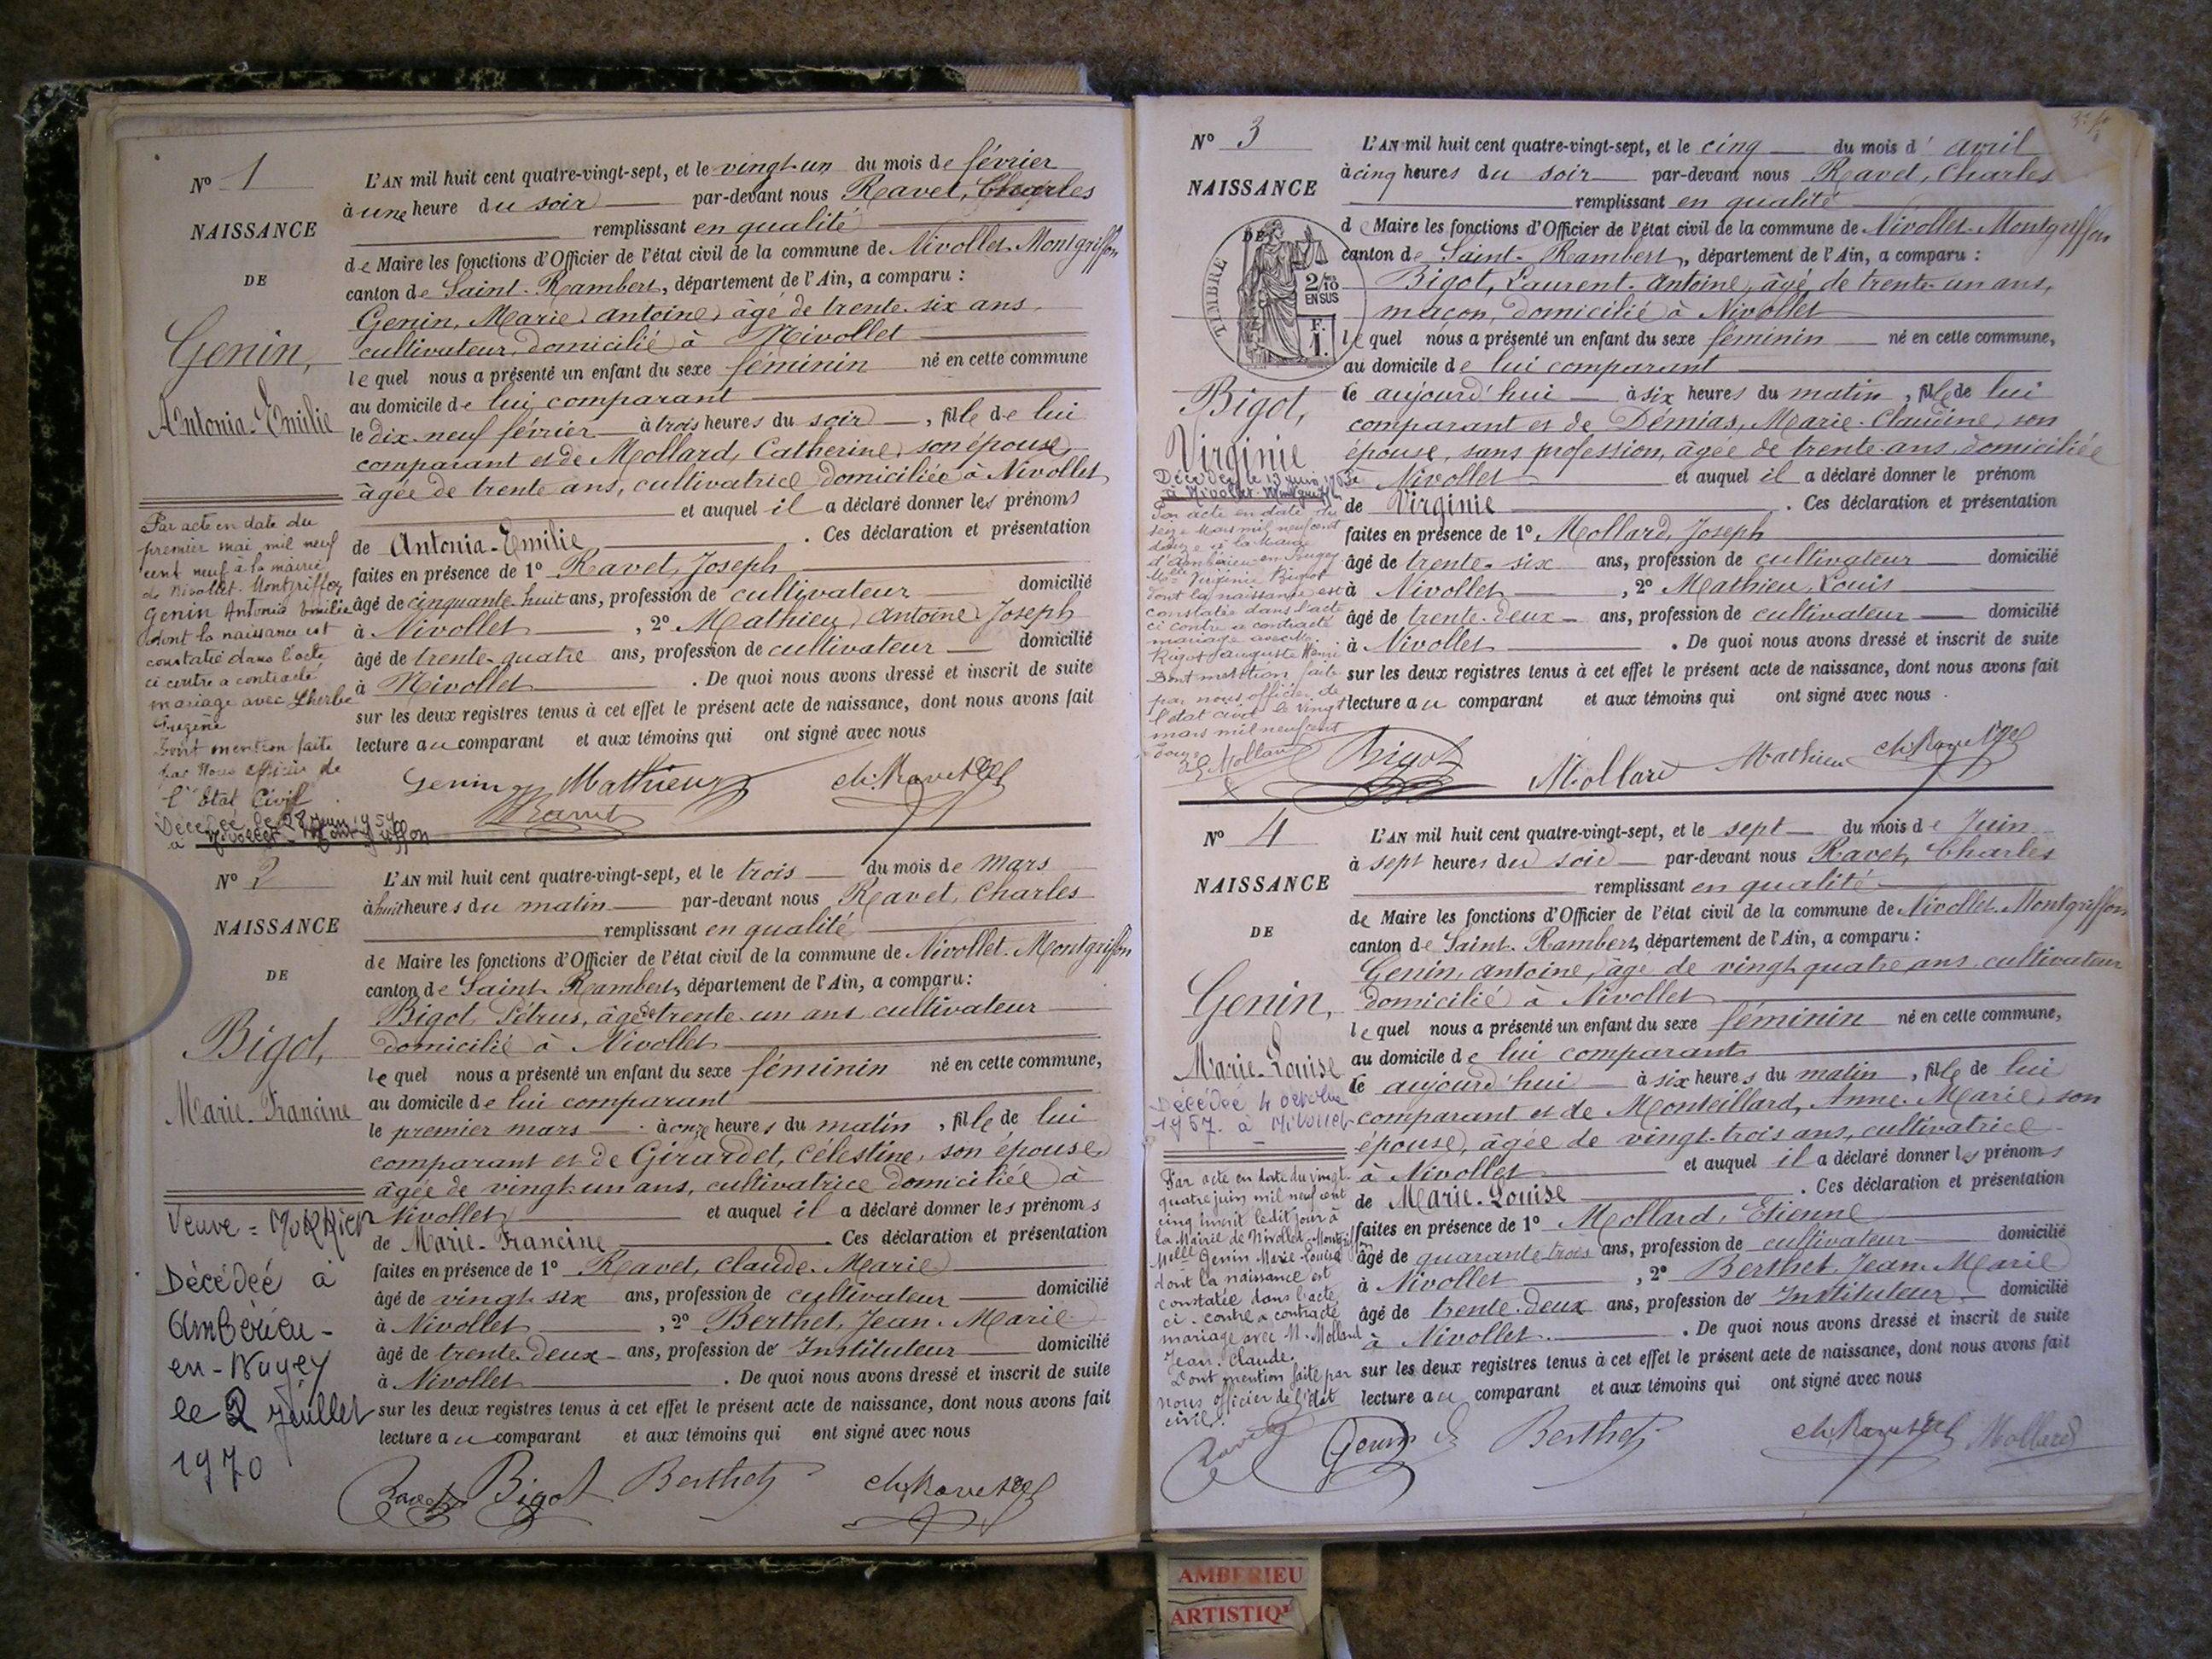 Nº 1
NAISSANCE
DE
Genin,
Antonia-Emilie
Par acte en date du
premier mai mil neuf
cent neuf à la mairie
de Nivollet-Montgriffon
Genin Antonia Emilie
dont la naissance est
constatée dans l'acte
ci contre a contracté
mariage avec Lherbe
Eugène
Dont mention faite
par Nous officier de
l'Etat Civil
Décédée le 28 juin 1954
à Nivollet-Montgriffon
L'AN mil huit cent quatre-vingt-sept, et le vingt-un du mois de février
à une heure du soir par-devant nous Ravet, Charles
remplissant en qualité
de Maire les fonctions d'Officier de l'état civil de la commune de Nivollet-Montgriffon
canton de Saint-Rambert, département de l'Ain, a comparu :
Genin, Marie-Antoine, âgé de trente-six ans
cultivateur, domicilié à Nivollet
le quel nous a présenté un enfant du sexe féminin né en cette commune
au domicile de lui comparant
le dix-neuf février à trois heures du soir, fille de lui
comparant et de Mollard, Catherine, son épouse,
âgée de trente ans, cultivatrice domiciliée à Nivollet
et auquel il a déclaré donner les prénoms
de Antonia-Emilie. Ces déclaration et présentation
faites en présence de 1º Ravet, Joseph
âgé de cinquante-huit ans, profession de cultivateur domicilié
à Nivollet, 2º Mathieu, Antoine Joseph
âgé de trente-quatre ans, profession de cultivateur domicilié
à Nivollet. De quoi nous avons dressé et inscrit de suite
sur les deux registres tenus à cet effet le présent acte de naissance, dont nous avons fait
lecture au comparant et aux témoins qui ont signé avec nous
Genin Mathieu Ch. Ravet
Ravet
Nº 2
NAISSANCE
DE
Bigot,
Marie-Francine
Veuve =
Décédée à
Ambérieu-
en-Bugey
le 2 Juillet
1970
L'AN mil huit cent quatre-vingt-sept, et le trois du mois de mars
à huit heures du matin par-devant nous Ravet, Charles
remplissant en qualité
de Maire les fonctions d'Officier de l'état civil de la commune de Nivollet-Montgriffon
canton de Saint-Rambert, département de l'Ain, a comparu :
Bigot, Pétrus, âgé de trente-un ans, cultivateur
domicilié à Nivollet
le quel nous a présenté un enfant du sexe féminin né en cette commune,
au domicile de lui comparant
le premier mars à onze heures du matin, fille de lui
comparant et de Girardet, Célestine, son épouse,
âgée de vingt-un ans, cultivatrice domiciliée à
Nivollet et auquel il a déclaré donner les prénoms
de Marie-Francine. Ces déclaration et présentation
faites en présence de 1º Ravet, Claude-Marie
âgé de vingt-six ans, profession de cultivateur domicilié
à Nivollet, 2º Berthet, Jean-Marie
âgé de trente-deux ans, profession de Instituteur domicilié
à Nivollet. De quoi nous avons dressé et inscrit de suite
sur les deux registres tenus à cet effet le présent acte de naissance, dont nous avons fait
lecture au comparant et aux témoins qui ont signé avec nous
Ravet Bigot Berthet Ch. Ravet
Nº 3
NAISSANCE
DE
TIMBRE
2/10
EN SUS
F.
1.
Bigot,
Virginie
Décédée le 13 juin
à Nivollet-Montgriffon
Par acte en date du
seize Mars mil neuf cent
douze à la Mairie
d'Ambérieu-en-Bugey
Mlle Virginie Bigot
dont la naissance est
constatée dans l'acte
ci contre a contracté
mariage avec M.
Auguste Henri
Dont mention faite
par nous officier de
l'état civil le vingt
mars mil neuf cent
douze
Mollard
L'AN mil huit cent quatre-vingt-sept, et le cinq du mois d'avril
à cinq heures du soir par-devant nous Ravet, Charles
remplissant en qualité
d e Maire les fonctions d'Officier de l'état civil de la commune de Nivollet-Montgriffon
canton de Saint-Rambert, département de l'Ain, a comparu :
Bigot, Laurent-Antoine, âgé de trente-un ans,
maçon, domicilié à Nivollet
le quel nous a présenté un enfant du sexe féminin né en cette commune,
au domicile de lui comparant
le aujourd'hui à six heures du matin, fille de lui
comparant et de Démias, Marie-Claudine, son
épouse, sans profession, âgée de trente ans, domiciliée
à Nivollet et auquel il a déclaré donner le prénom
de Virginie. Ces déclaration et présentation
faites en présence de 1º Mollard, Joseph
âgé de trente-six ans, profession de cultivateur domicilié
à Nivollet, 2º Mathieu, Louis
âgé de trente-deux ans, profession de cultivateur domicilié
à Nivollet. De quoi nous avons dressé et inscrit de suite
sur les deux registres tenus à cet effet le présent acte de naissance, dont nous avons fait
lecture au comparant et aux témoins qui ont signé avec nous.
Bigot Mollard Mathieu Ch. Ravet
Nº 4
NAISSANCE
DE
Genin,
Marie-Louise
Décédée 4 octobre
1957 à Nivollet
Par acte en date du vingt-
quatre juin mil neuf cent
cinq inscrit ledit jour à
la Mairie de Nivollet-Montgriffon
Melle Genin Marie-Louise
dont la naissance est
constatée dans l'acte
ci-contre a contracté
mariage avec M. Mollard
Jean-Claude.
Dont mention faite par
nous officier de l'état
civil.
Ravet
L'AN mil huit cent quatre-vingt-sept, et le sept du mois de Juin
à sept heures du soir par-devant nous Ravet, Charles
remplissant en qualité
de Maire les fonctions d'Officier de l'état civil de la commune de Nivollet-Montgriffon
canton de Saint-Rambert, département de l'Ain, a comparu :
Genin, Antoine, âgé de vingt-quatre ans, cultivateur
domicilié à Nivollet
le quel nous a présenté un enfant du sexe féminin né en cette commune,
au domicile de lui comparant
le aujourd'hui à six heures du matin, fille de lui
comparant et de Monteillard, Anne-Marie, son
épouse, âgée de vingt-trois ans, cultivatrice
à Nivollet et auquel il a déclaré donner les prénoms
de Marie-Louise. Ces déclaration et présentation
faites en présence de 1º Mollard, Etienne
âgé de quarante-trois ans, profession de cultivateur domicilié
à Nivollet, 2º Berthet, Jean-Marie
âgé de trente-deux ans, profession de Instituteur domicilié
à Nivollet. De quoi nous avons dressé et inscrit de suite
sur les deux registres tenus à cet effet le présent acte de naissance, dont nous avons fait
lecture au comparant et aux témoins qui ont signé avec nous
Genin Berthet Ch. Ravet Mollard
AMBERIEU
ARTISTIQ